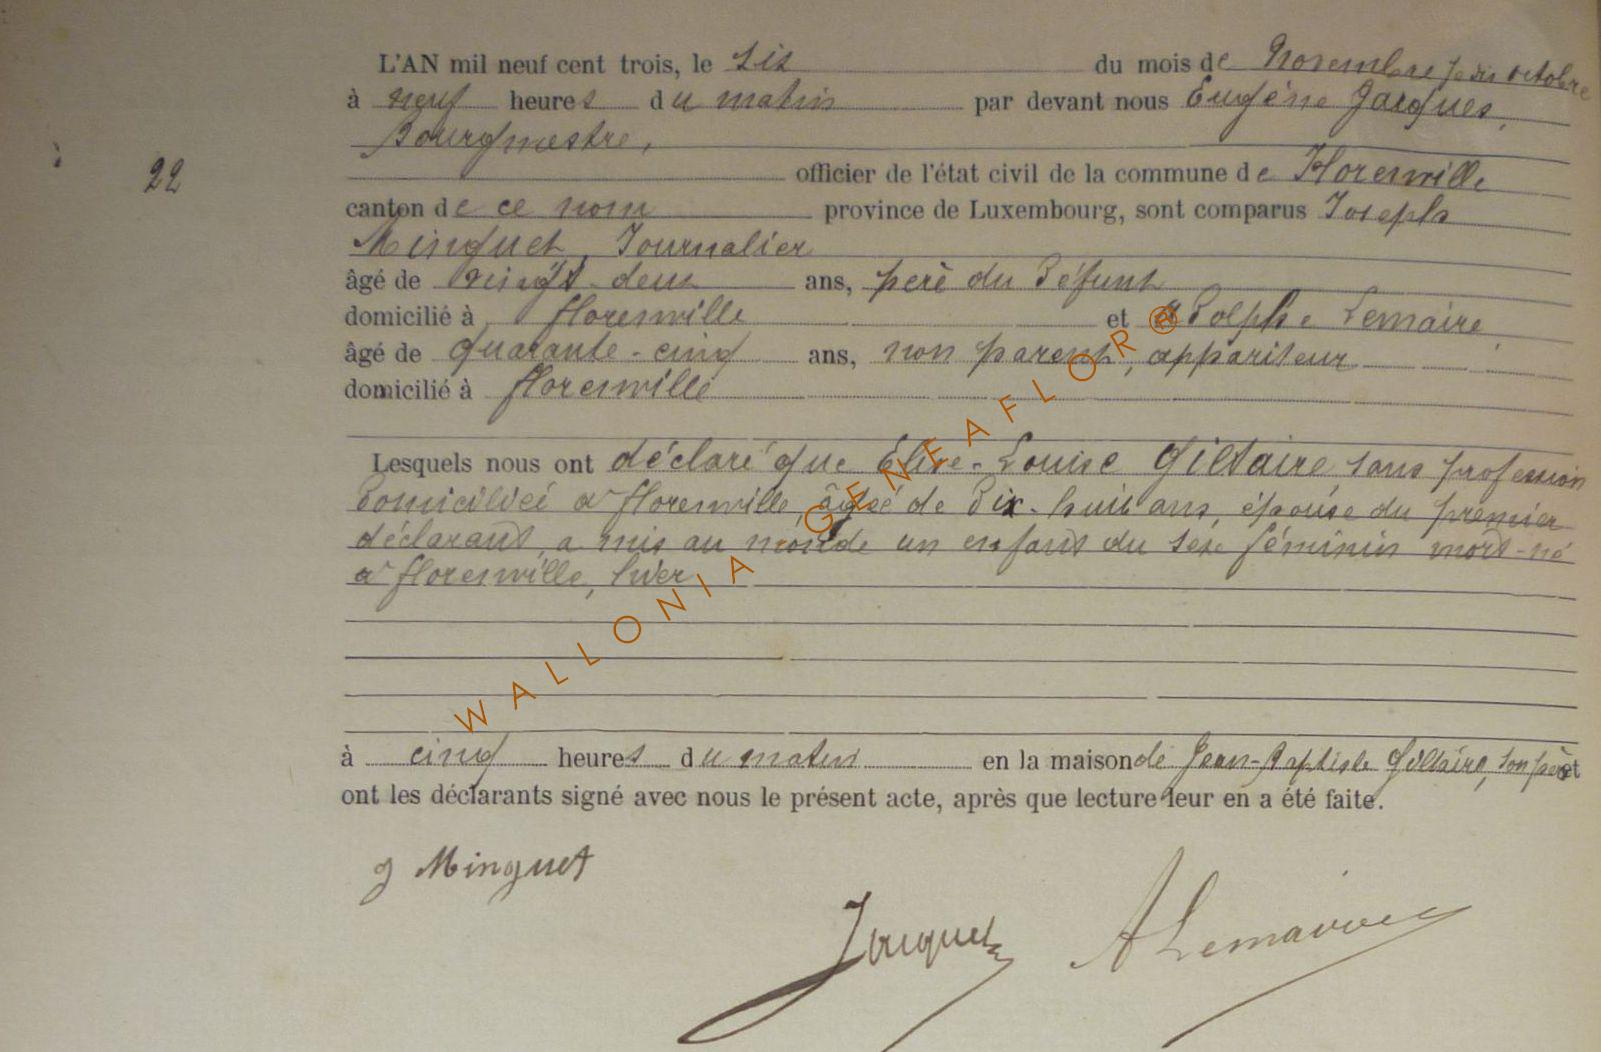 L'AN mil neuf cent trois, le six du mois de Novembre octobre
à neuf heures du matin par devant nous Eugène Jacques,
Bourgmestre,
22
officier de l'état civil de la commune de Florenville
canton de ce nom province de Luxembourg, sont comparus Joseph
Minguet, Journalier
âgé de vingt-deux ans, père du défunt
domicilié à Florenville et Adolphe Lemaire,
âgé de quarante-cinq ans, non parent, appariteur
domicilié à florenville
Lesquels nous ont déclaré que Elise-Louise Giltaire, sans profession
domiciliée à florenville, âgée de dix-huit ans, épouse du premier
déclarant, a mis au monde un enfant du sexe féminin mort-né
à florenville, hier
à cinq heures du matin en la maison de Jean-Baptiste Giltaire, son père et
ont les déclarants signé avec nous le présent acte, après que lecture leur en a été faite.
J Minguet
Jacques
A Lemaire
WALLONIA GENEAFLOR ®